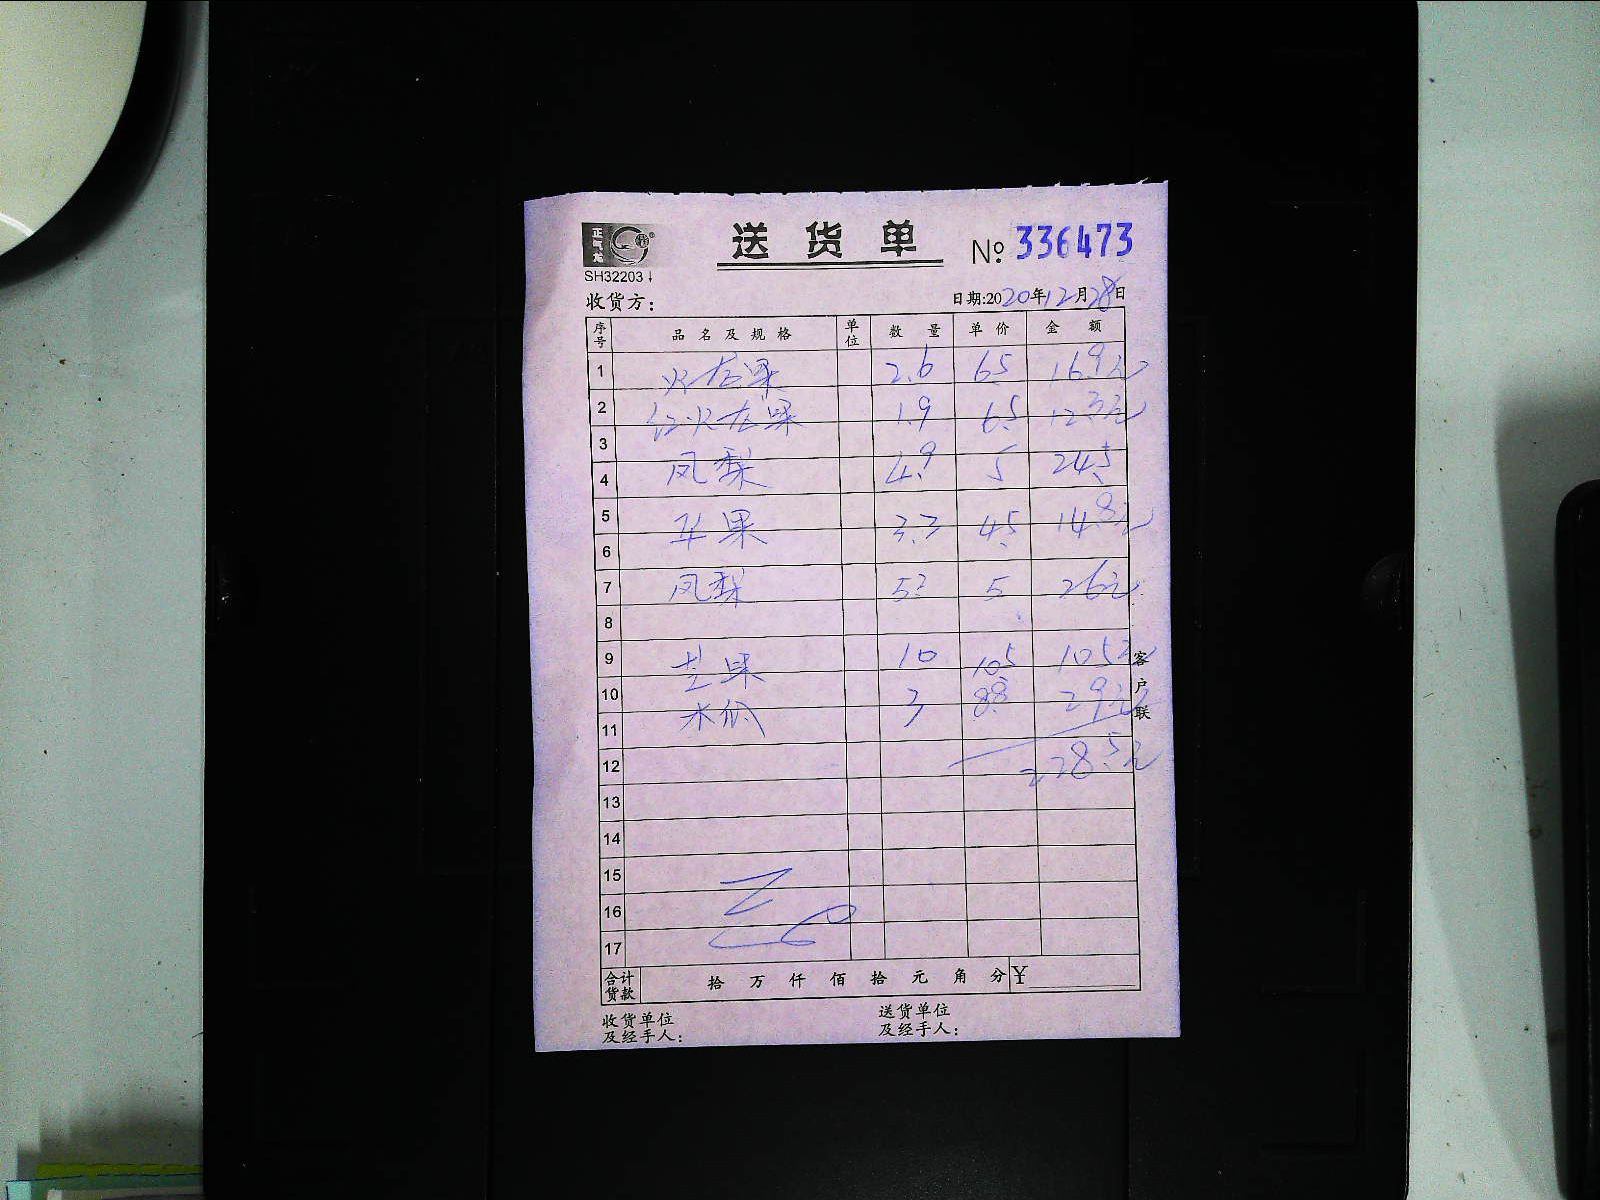 正气龙
SH32203↓
送货单
№ 336473
收货方：
日期:2020年12月28日
序号 品名及规格 单位 数量 单价 金额
1 火龙果 2.6 6.5 16.9元
2 红火龙果 1.9 6.5 12.3元
3
4 凤梨 4.9 5 24.5
5 苹果 3.3 4.5 14.8元
6
7 凤梨 5.2 5 26元
8
9 芒果 10 10.5 105元
10 木瓜 3 9.8 29元
11
12 228.5元
13
14
15
16
17
合计货款 拾 万 仟 佰 拾 元 角 分 ¥
收货单位及经手人：
送货单位及经手人：
客户联